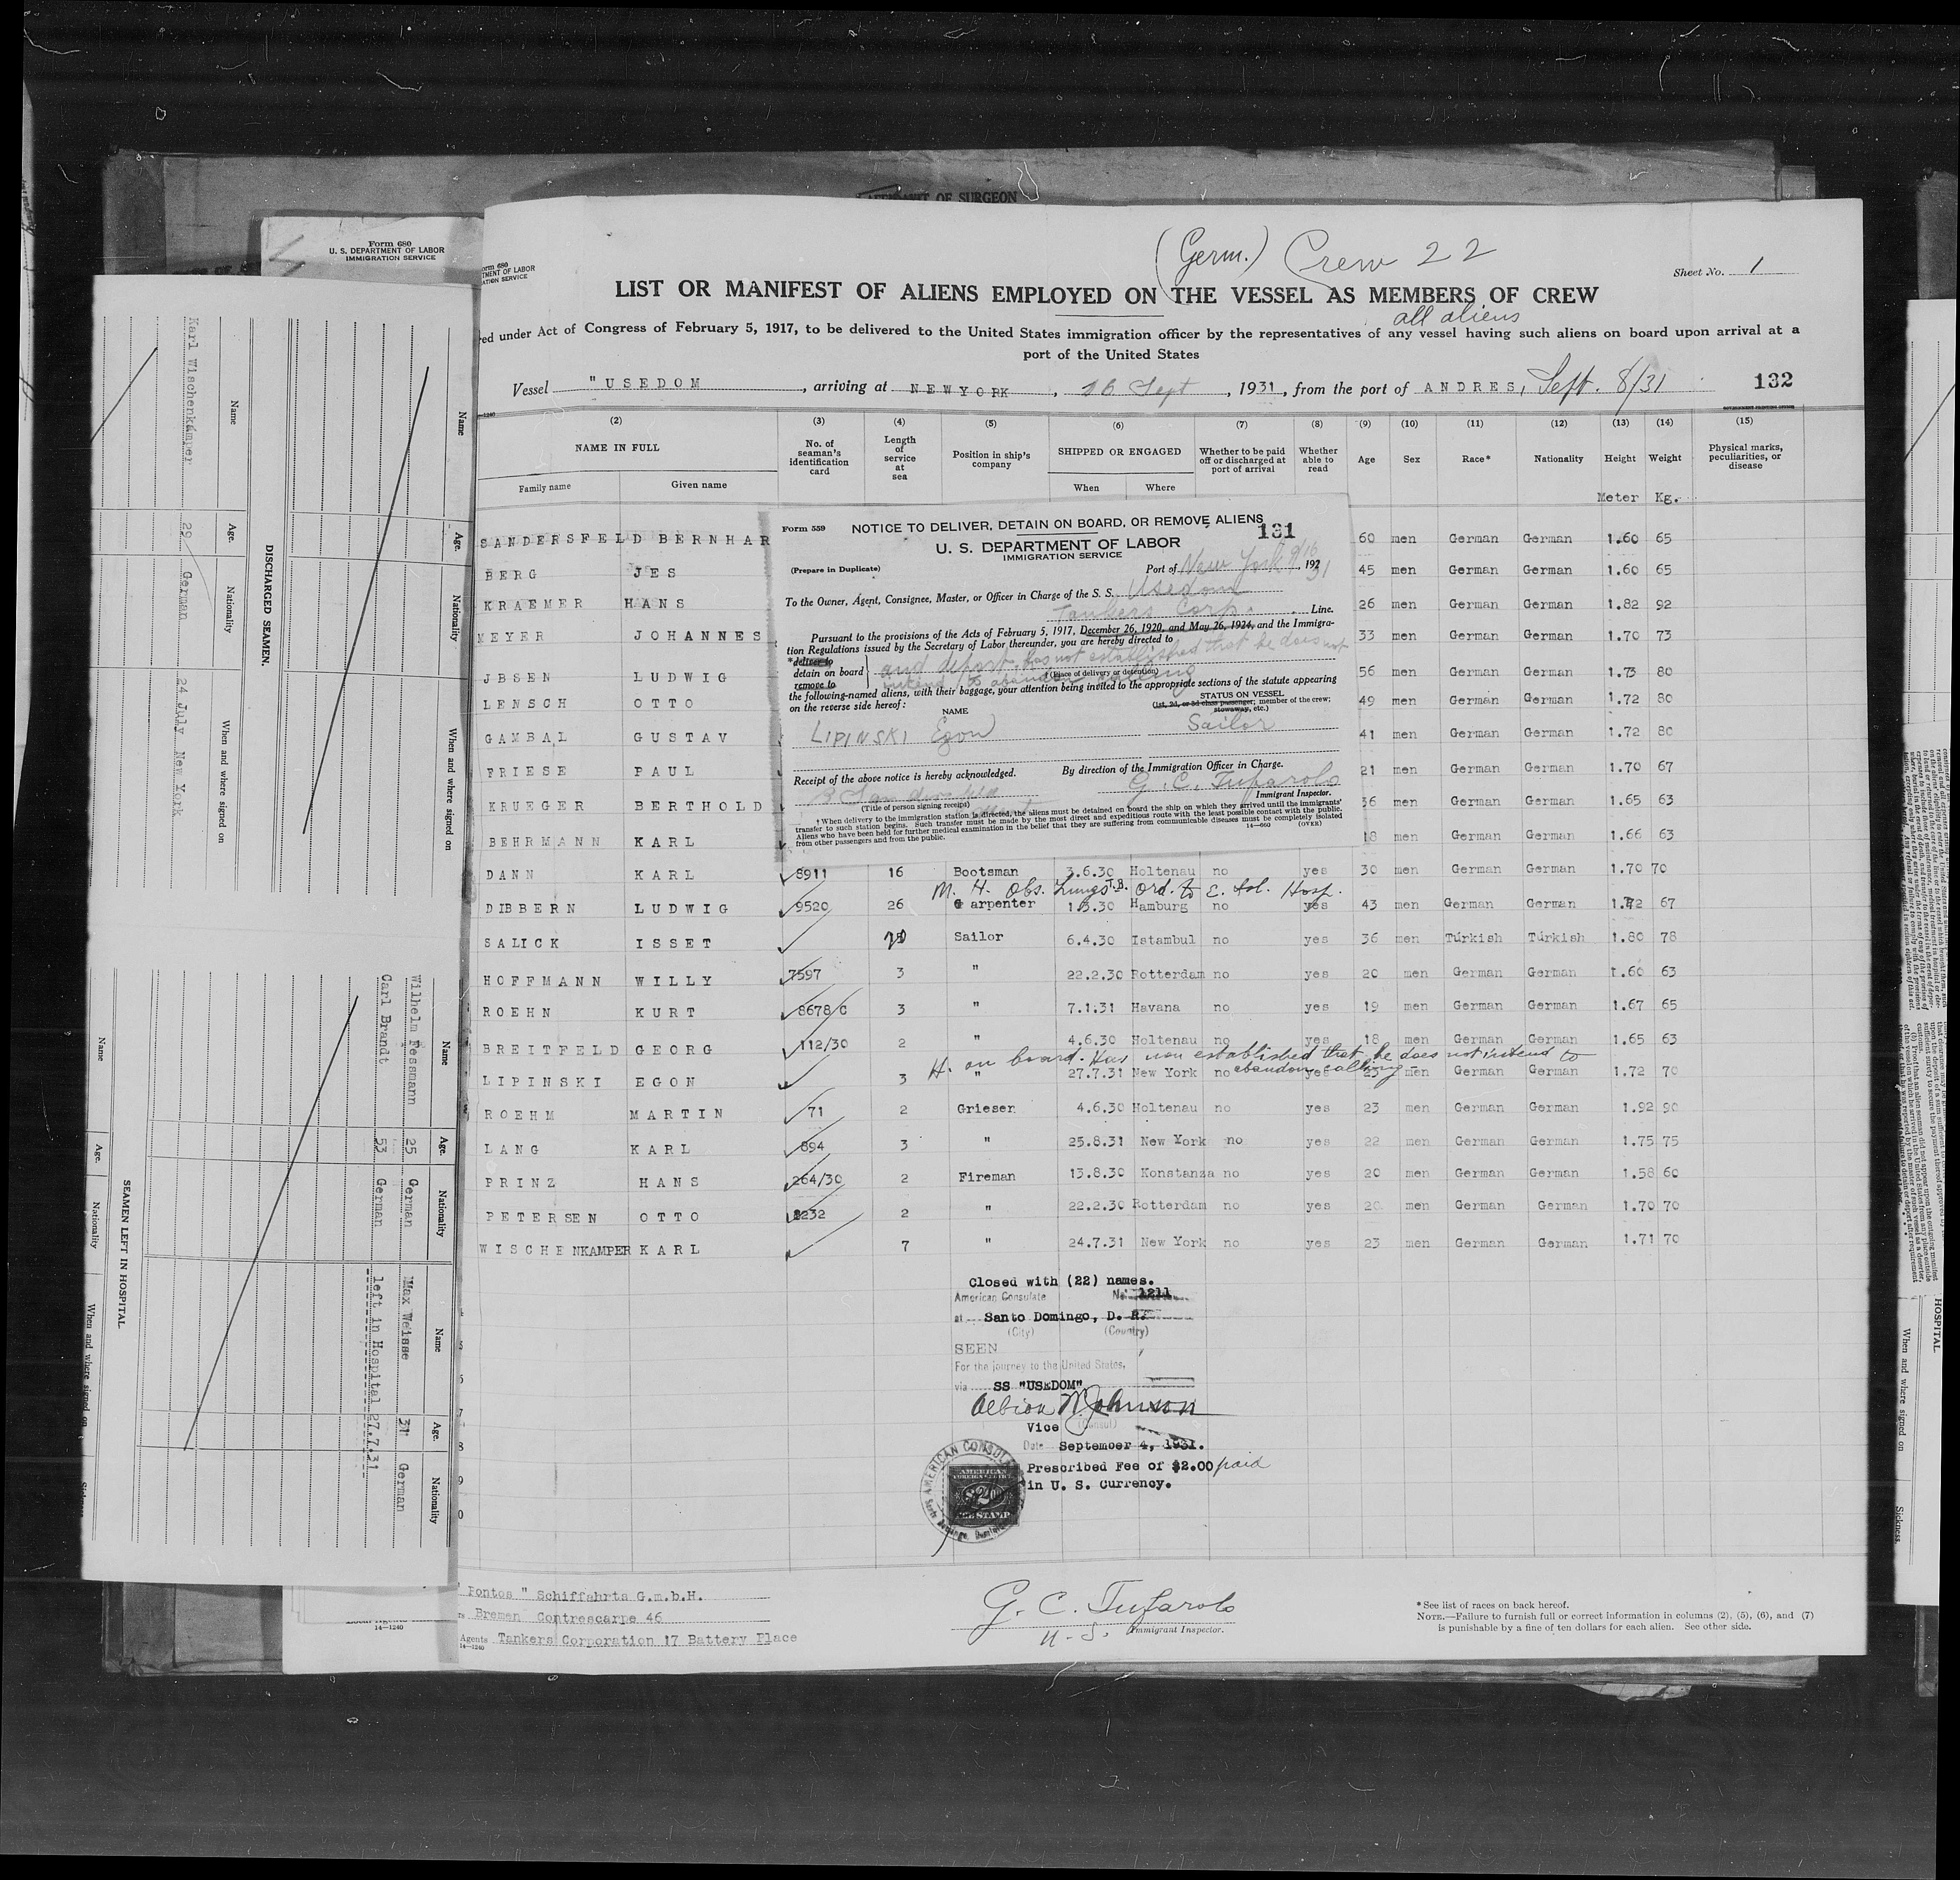 AFFIDAVIT OF SURGEON
Form 680
U. S. DEPARTMENT OF LABOR
IMMIGRATION SERVICE
(Germ.) Crew 22
Sheet No. 1
LIST OR MANIFEST OF ALIENS EMPLOYED ON THE VESSEL AS MEMBERS OF CREW
all aliens
red under Act of Congress of February 5, 1917, to be delivered to the United States immigration officer by the representatives of any vessel having such aliens on board upon arrival at a
port of the United States
Vessel "USEDOM, arriving at NEWYORK, 16 Sept, 1931, from the port of ANDRES, Sept. 8/31 132
(2) (3) (4) (5) (6) (7) (8) (9) (10) (11) (12) (13) (14) (15)
NAME IN FULL
Family name Given name
No. of seaman's identification card
Length of service at sea
Position in ship's company
SHIPPED OR ENGAGED
When Where
Whether to be paid off or discharged at port of arrival
Whether able to read
Age Sex Race* Nationality Height Weight
Physical marks, peculiarities, or disease
Meter Kg.
SANDERSFELD BERNHAR 60 men German German 1.60 65
BERG JES 45 men German German 1.60 65
KRAEMER HANS 26 men German German 1.82 92
MEYER JOHANNES 33 men German German 1.70 73
JBSEN LUDWIG 56 men German German 1.73 80
LENSCH OTTO 49 men German German 1.72 80
GAMBAL GUSTAV 41 men German German 1.72 80
FRIESE PAUL 21 men German German 1.70 67
KRUEGER BERTHOLD 36 men German German 1.65 63
BEHRMANN KARL 18 men German German 1.66 63
Form 559
NOTICE TO DELIVER, DETAIN ON BOARD, OR REMOVE ALIENS
131
U. S. DEPARTMENT OF LABOR
IMMIGRATION SERVICE
(Prepare in Duplicate)
Port of New York 9/16, 1931
To the Owner, Agent, Consignee, Master, or Officer in Charge of the S. S. Usedom
Tankers Corp. Line.
Pursuant to the provisions of the Acts of February 5, 1917, December 26, 1920, and May 26, 1924, and the Immigra-
tion Regulations issued by the Secretary of Labor thereunder, you are hereby directed to
*deliver to
detain on board
remove to
and deport, has not established that he does not
intend to abandon calling
† (Place of delivery or detention)
the following-named aliens, with their baggage, your attention being invited to the appropriate sections of the statute appearing
on the reverse side hereof:
NAME
STATUS ON VESSEL
(1st, 2d, or 3d class passenger; member of the crew;
stowaway, etc.)
LIPINSKI Egon Sailor
Receipt of the above notice is hereby acknowledged.
By direction of the Immigration Officer in Charge.
G. C. Tufarolo
(Title of person signing receipt)
Immigrant Inspector.
† When delivery to the immigration station is directed, the aliens must be detained on board the ship on which they arrived until the immigrants'
transfer to such station begins. Such transfer must be made by the most direct and expeditious route with the least possible contact with the public.
Aliens who have been held for further medical examination in the belief that they are suffering from communicable diseases must be completely isolated
from other passengers and from the public.
14—660 (OVER)
DANN KARL 8911 16 Bootsman 3.6.30 Holtenau no yes 30 men German German 1.70 70
M. H. Obs. Lungs T.B. Ord. to E. Isl. Hosp.
DIBBERN LUDWIG 9520 26 Carpenter 1.5.30 Hamburg no yes 43 men German German 1.72 67
SALICK ISSET 20 Sailor 6.4.30 Istambul no yes 36 men Túrkish Túrkish 1.80 78
HOFFMANN WILLY 7597 3 " 22.2.30 Rotterdam no yes 20 men German German 1.60 63
ROEHN KURT 8678/C 3 " 7.1.31 Havana no yes 19 men German German 1.67 65
BREITFELD GEORG 112/30 2 " 4.6.30 Holtenau no yes 18 men German German 1.65 63
H. on board. Has non established that he does not intend to
abandon calling
LIPINSKI EGON 3 " 27.7.31 New York no yes 25 men German German 1.72 70
ROEHM MARTIN 71 2 Grieser 4.6.30 Holtenau no yes 23 men German German 1.92 90
LANG KARL 894 3 " 25.8.31 New York no yes 22 men German German 1.75 75
PRINZ HANS 264/30 2 Fireman 13.8.30 Konstanza no yes 20 men German German 1.58 60
PETERSEN OTTO 8232 2 " 22.2.30 Rotterdam no yes 20 men German German 1.70 70
WISCHENKAMPER KARL 7 " 24.7.31 New York no yes 23 men German German 1.71 70
Closed with (22) names.
American Consulate No. 1211
at Santo Domingo, D. R.
(City) (Country)
SEEN
For the journey to the United States,
via SS "USEDOM"
Albion W. Johnson
Vice (Consul)
Date September 4, 1931.
Prescribed Fee of $2.00 paid
in U. S. Currency.
AMERICAN CONSULATE
AMERICAN
FEE STAMP
" Pontos " Schiffahrts G.m.b.H.
Bremen Contrescarpe 46
Agents Tankers Corporation 17 Battery Place
14—1240
G. C. Tufarolo
U. S. Immigrant Inspector.
* See list of races on back hereof.
NOTE.—Failure to furnish full or correct information in columns (2), (5), (6), and (7)
is punishable by a fine of ten dollars for each alien. See other side.
DISCHARGED SEAMEN.
Name Age. Nationality When and where signed on
Karl Wischenkämper 29 German 24 July New York
SEAMEN LEFT IN HOSPITAL
Name Age. Nationality
Wilhelm Fessmann 25 German
Carl Brandt 53 German
Name Age. Nationality
Max Weisse 31 German
left in Hospital 27.7.31
Name Age. Nationality When and where signed on
HOSPITAL.
When and where signed on
Sickness.